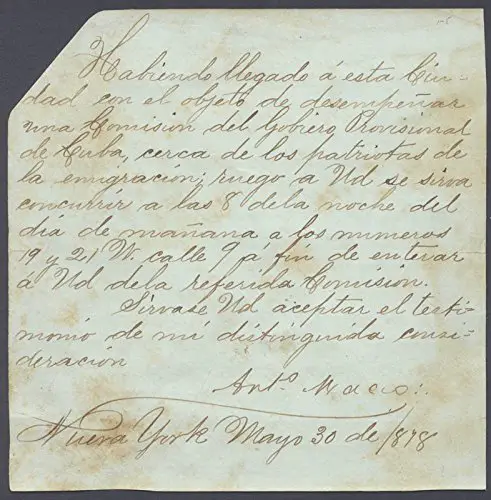 Habiendo llegado á esta Ciu-
dad con el objeto de desempeñar
una Comision del Gobiero Provisional
de Cuba, cerca de los patriotas de
la emigracion; ruego a Ud se sirva
concurrir a las 8 dela noche del
dia de mañana a los numeros
19 y 21 W. calle 9 á fin de enterar
á Ud dela referida Comision.
Sirvase Ud aceptar el testi-
monio de mi distinguida consi-
deracion
Anto Maceo.
Nueva York Mayo 30 de 1878